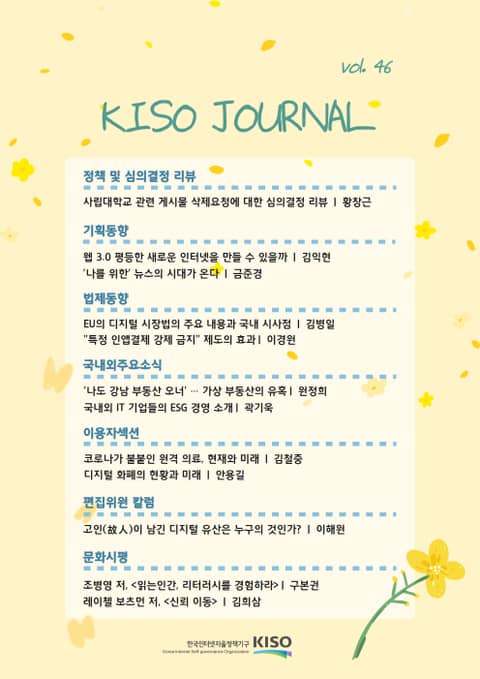 vol. 46
KISO JOURNAL
정책 및 심의결정 리뷰
사립대학교 관련 게시물 삭제요청에 대한 심의결정 리뷰 | 황창근
기획동향
웹 3.0 평등한 새로운 인터넷을 만들 수 있을까 | 김익현
'나를 위한' 뉴스의 시대가 온다 | 금준경
법제동향
EU의 디지털 시장법의 주요 내용과 국내 시사점 | 김병일
"특정 인앱결제 강제 금지" 제도의 효과 | 이경원
국내외주요소식
'나도 강남 부동산 오너' … 가상 부동산의 유혹 | 원정희
국내외 IT 기업들의 ESG 경영 소개 | 곽기욱
이용자섹션
코로나가 불붙인 원격 의료, 현재와 미래 | 김철중
디지털 화폐의 현황과 미래 | 안용길
편집위원 칼럼
고인(故人)이 남긴 디지털 유산은 누구의 것인가? | 이해원
문화시평
조병영 저, <읽는인간, 리터러시를 경험하라> | 구본권
레이첼 보츠먼 저, <신뢰 이동> | 김희삼
한국인터넷자율정책기구 KISO
Korea Internet Self-governance Organization